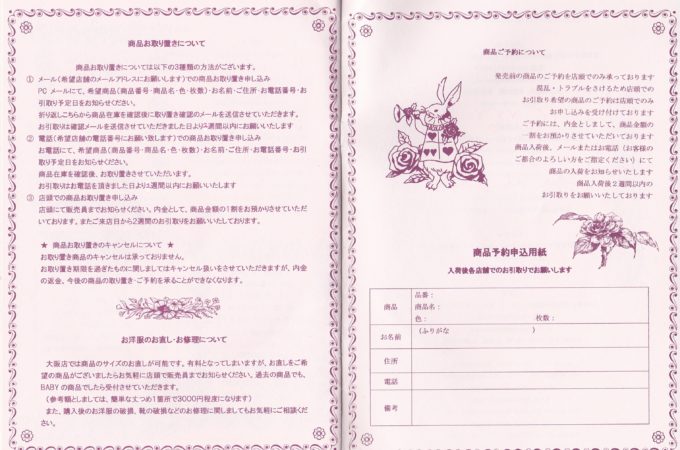 商品お取り置きについて
商品お取り置きについては以下の3種類の方法がございます。
① メール(希望店舗のメールアドレスにお願いします)での商品お取り置き申し込み
PCメールにて、希望商品(商品番号・商品名・色・枚数)・お名前・ご住所・お電話番号・お
引取り予定日をお知らせください。
折り返しこちらから商品在庫を確認後に取り置き確認のメールを送信させていただきます。
お引取りは確認メールを送信させていただきました日より2週間以内にお願いいたします
② 電話(希望店舗の電話番号にお願い致します)での商品お取り置き申し込み
お電話にて、希望商品(商品番号・商品名・色・枚数)・お名前・ご住所・お電話番号・お引取
り予定日をお知らせください。
商品在庫を確認後、お取置きさせていただいます。
お引取りはお電話を頂きました日より2週間以内にお願いいたします
③ 店頭での商品お取り置き申し込み
店頭にて販売員までお知らせください。内金として、商品金額の1割をお預かりさせていただい
ております。またご来店日から2週間のお引取りをお願いいたしております。
★ 商品お取り置きのキャンセルについて ★
お取り置き商品のキャンセルは承っておりません。
お取り置き期限を過ぎたものに関しましてはキャンセル扱いをさせていただきますが、内金
の返金、今後の商品の取り置き・ご予約を承ることができなくなります。
お洋服のお直し・お修理について
大阪店では商品のサイズのお直しが可能です。有料となってしまいますが、お直しをご希
望の商品がございましたらお気軽に店頭で販売員までお知らせください。過去の商品でも、
BABYの商品でしたら受付させていただきます。
(参考額としましては、簡単な丈つめ1箇所で3000円程度になります)
また、購入後のお洋服の破損、靴の破損などのお修理に関しましてもお気軽にご相談くだ
さい。
商品ご予約について
発売前の商品のご予約を店頭でのみ承っております
混乱・トラブルをさけるため店頭での
お引取り希望の商品のご予約は店頭でのみ
お申し込みを受け付けております
ご予約には、内金としまして、商品金額の
一割をお預かりさせていただいております
商品入荷後、メールまたはお電話(お客様の
ご都合のよろしい方をご指定ください)にて
商品の入荷をお知らせいたします
商品入荷後2週間以内の
お引取りをお願いいたしております
商品予約申込用紙
入荷後各店舗でのお引取りでお願いします
商品
品番:
商品名:
色: 枚数:
お名前
(ふりがな )
住所
電話
備考